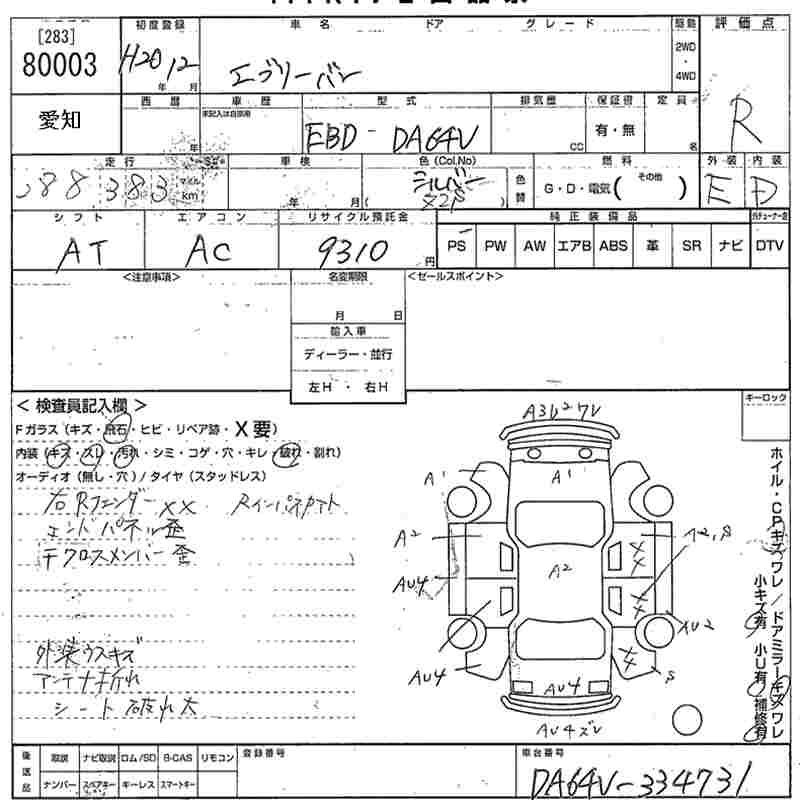 [283]
80003
初度登録
H20 12
年 月
車名 ドア グレード
エブリーバン
駆動
2WD
・
4WD
評価点
R
愛知
西暦
年
車歴
未記入は自家用
型式
EBD-DA64V
排気量
CC
保証書
有・無
定員
名
走行
88383
マイル
km
車検
年 月
色(Col.No)
シルバー
Z2S
色替
燃料
G・D・電気( その他 )
外装
E
内装
D
シフト
AT
エアコン
AC
リサイクル預託金
9310
円
純正装備品
PS PW AW エアB ABS 革 SR ナビ DTV
<注意事項>
名変期限
月 日
輸入車
ディーラー・並行
左H・右H
<セールスポイント>
<検査員記入欄>
Fガラス(キズ・飛石・ヒビ・リペア跡・X要)
内装(キズ・スレ・汚れ・シミ・コゲ・穴・キレ・破れ・割れ)
オーディオ(無し・穴)/タイヤ(スタッドレス)
右Rフェンダー××
エンドパネル歪
下クロスメンバー歪
外装ウスキズ
アンテナ折れ
シート破れ大
A3U2ワレ
A1
A1
A2
A2
A2,S
AU4
AU2
AU4
AU4
S
AU4ズレ
キーロック
ホイル・CPキズワレ/ドアミラーキズワレ
小キズ有 小U有 補修有
後送品
取説 ナビ取説 ロム/SD B-CAS リモコン
ナンバー スペアキー キーレス スマートキー
登録番号
車台番号
DA64V-334731